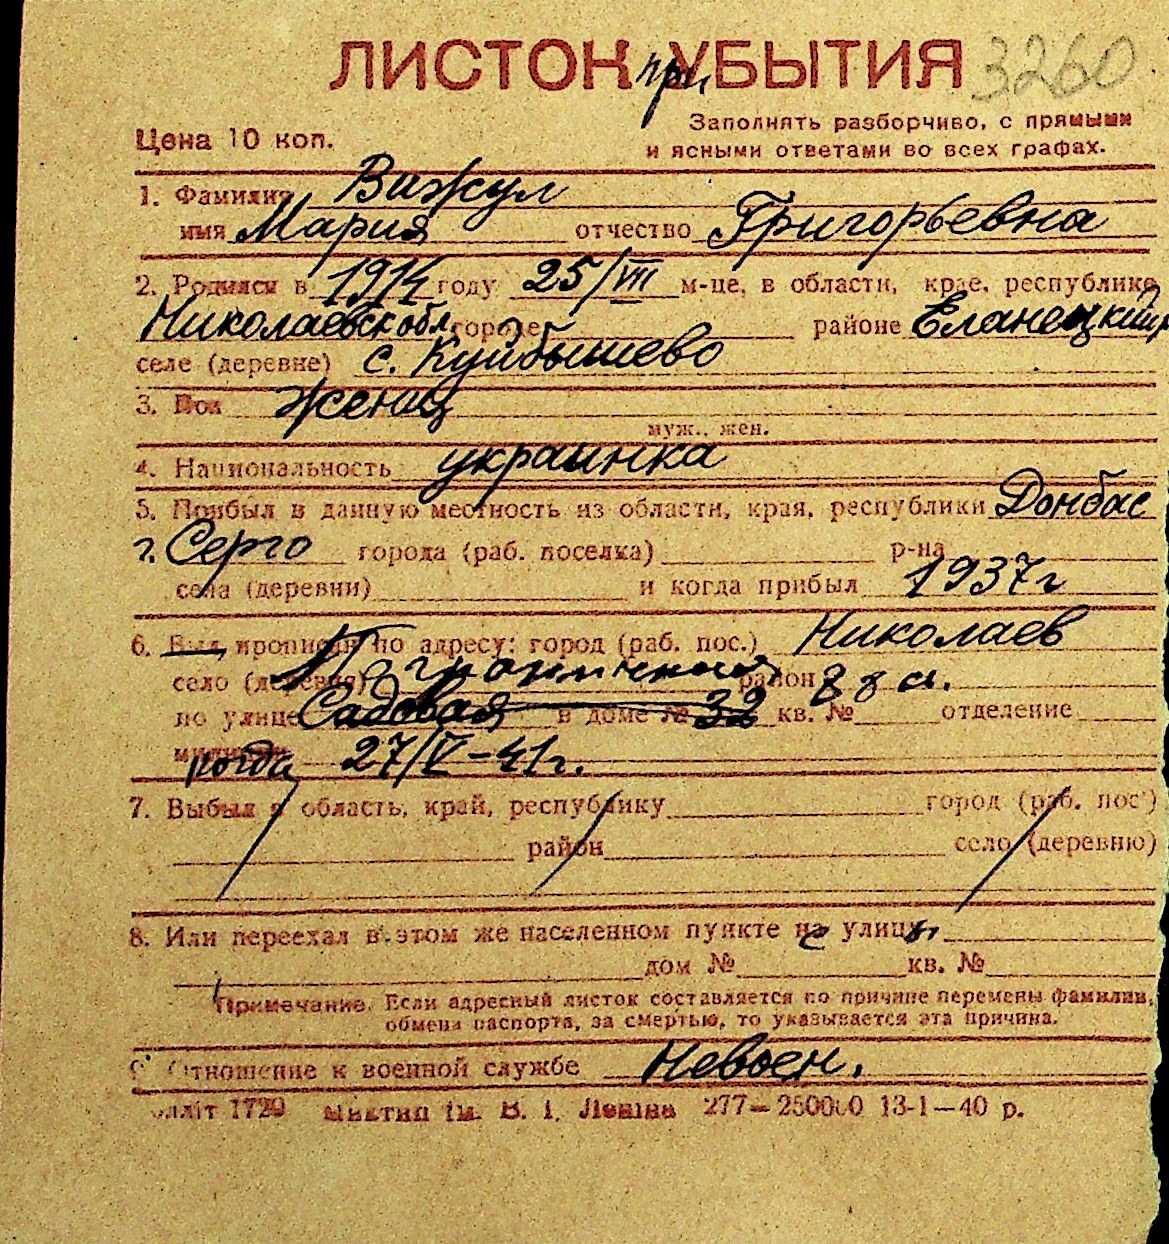 ЛИСТОК при УБЫТИЯ 3260
Цена 10 коп.
Заполнять разборчиво, с прямыми
и ясными ответами во всех графах.
1. Фамилия Вижул
имя Мария отчество Григорьевна
2. Родился в 1914 году 25/VIII м-це, в области, крае, республике
Николаевск обл. городе районе Еланецкий
селе (деревне) с. Куйбышево
3. Пол женщ
муж., жен.
4. Национальность украинка
5. Прибыл в данную местность из области, края, республики Донбас
г. Серго города (раб. поселка) р-на
села (деревни) и когда прибыл 1937 г
6. Был прописан по адресу: город (раб. пос.) Николаев
село (деревня) район
по улице Садовая в доме № 32 кв. № отделение
милиции когда 27/V-41 г.
7. Выбыл в область, край, республику город (раб. пос.)
район село (деревню)
8. Или переехал в этом же населенном пункте с улицы
дом № кв. №
Примечание. Если адресный листок составляется по причине перемены фамилии,
обмена паспорта, за смертью, то указывается эта причина.
9. Отношение к военной службе Невоен.
1720 им. В. І. Леніна 277—250000 13-1—40 р.